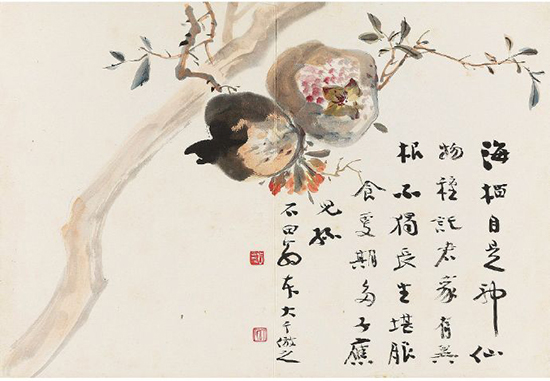 海榴自是神仙
物種託君家有異
根不獨長生堪服
食期多子應
兒孫
石田翁本大千倣之